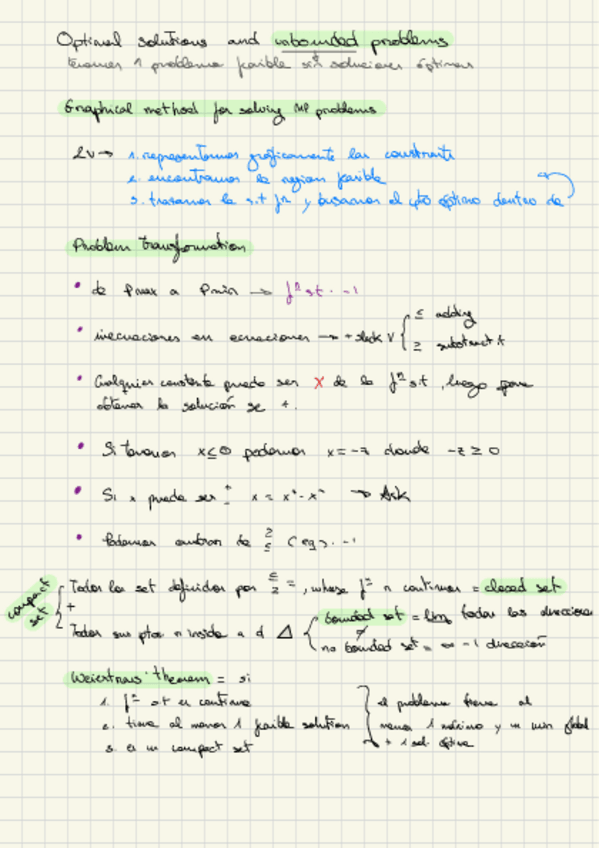 Optimal solutions and unbounded problems
tenemos 1 problema factible sin soluciones óptimas
Graphical method for solving MP problems
2v → 1. representamos gráficamente las constraints
2. encontramos la region factible
3. trazamos la s.t fⁿ y buscamos el pto óptimo dentro de
Problem transformation
• de Pmax a Pmin → fⁿ st · -1
• inecuaciones en ecuaciones → + slack v { ≤ adding
≥ substract
• Cualquier constante puede ser X de la fⁿ s.t, luego para
obtener la solución se +.
• Si tenemos x≤0 podemos x = -z donde -z ≥ 0
• Si x puede ser ± x = x⁺ - x⁻ → Ask
• Podemos de ≥ ≤ (eq). -1
compact set
Todos los set definidos por ≤ ≥ =, whose fⁿ n continuas = closed set
+
Todos sus ptos n inside a d △ { bounded set = lim todas las direcciones
no bounded set = ∞ -1 dirección
Weierstrass' theorem = si
1. fⁿ st es continua
2. tiene al menos 1 factible solution
3. es un compact set
el problema tiene al
menos 1 máximo y un min global
+ 1 sol. óptima